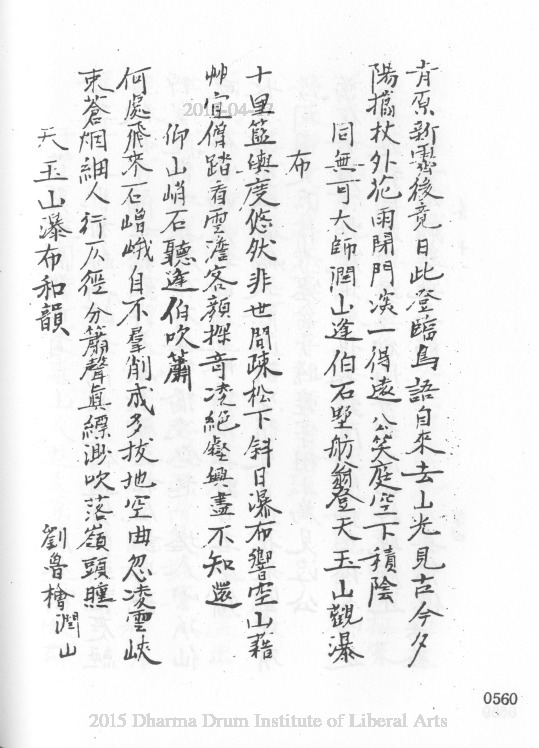 青原新霽後竟日此登臨鳥語自來去山光見古今夕
陽攜杖外花雨閉門深一得遠公笑庭空下積陰
同無可大師潤山逢伯石墅舫翁登天玉山觀瀑
布
十里籃輿度悠然非世間疎松下斜日瀑布響空山藉
艸宜僧踏看雲澹客顏探奇凌絕壑興盡不知還
仰山峭石聽逢伯吹簫
何處飛來石嶒峨自不羣削成多拔地空曲忽凌雲峽
束蒼烟細人行仄徑分簫聲真縹渺吹落嶺頭曛
天玉山瀑布和韻
劉魯檜潤山
0560
2015-04-27
2015 Dharma Drum Institute of Liberal Arts